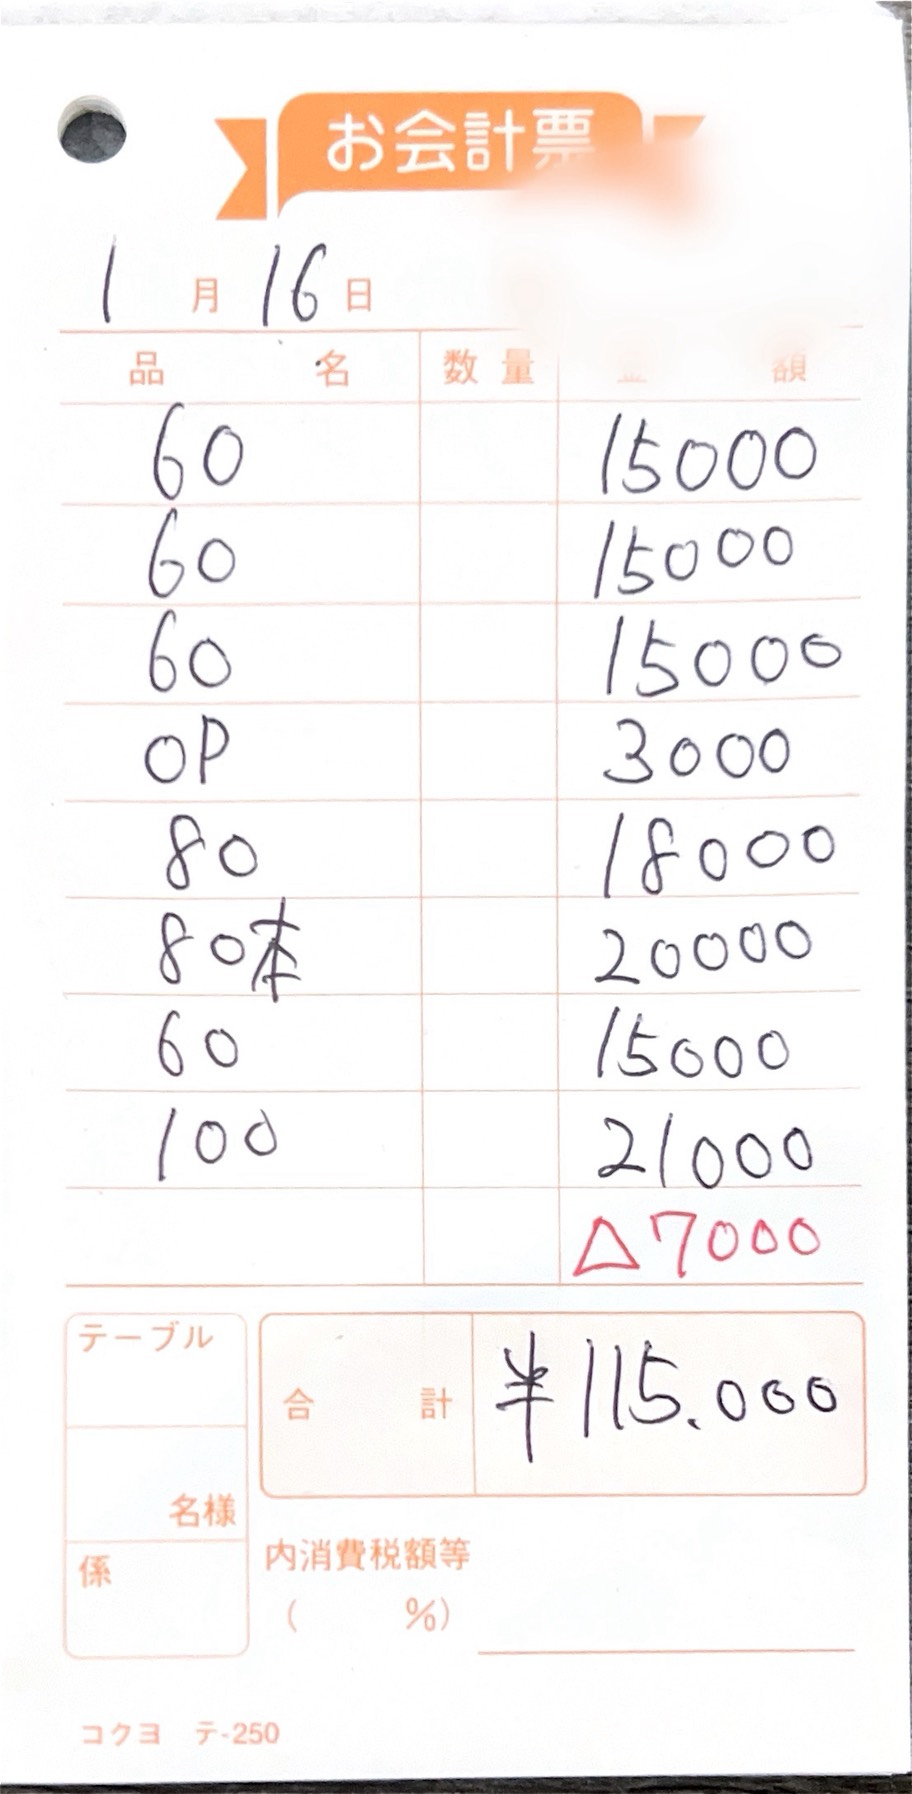 お会計票
1月16日
品名 数量 金額
60 15000
60 15000
60 15000
OP 3000
80 18000
80本 20000
60 15000
100 21000
△7000
テーブル
合計 ¥115.000
名様
係
内消費税額等
( %)
コクヨ テ-250